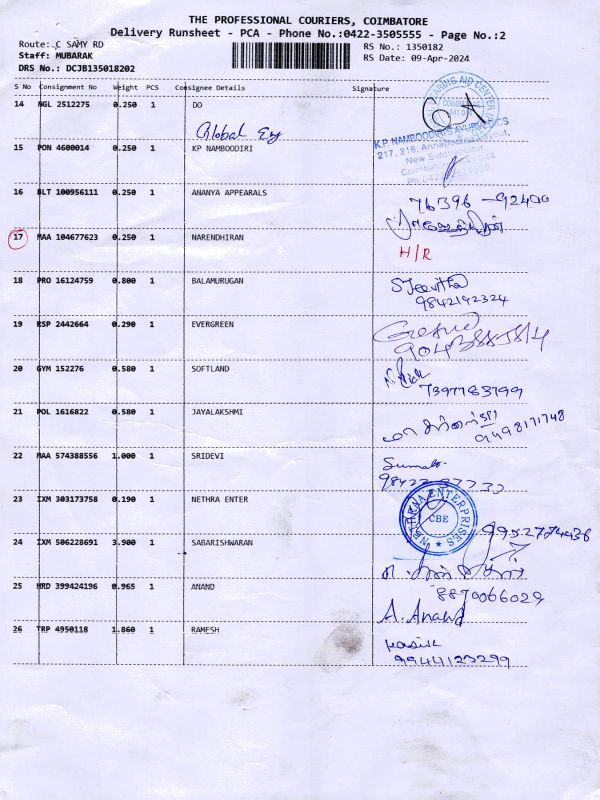 THE PROFESSIONAL COURIERS, COIMBATORE
Delivery Runsheet - PCA - Phone No.:0422-3505555 - Page No.:2
Route: C SAMY RD
RS No.: 1350182
Staff: MUBARAK
RS Date: 09-Apr-2024
DRS No.: DCJB135018202
S No Consignment No Weight PCS Consignee Details Signature
14 NGL 2512275 0.250 1 DO
HEARING AID CENTER
COIMBATORE
Global
15 PON 4600014 0.250 1 KP NAMBOODIRI
K.P. NAMBOODIRI'S AYURVEDICS
217, 218, Annai
New Siddhapudur,
16 BLT 100956111 0.250 1 ANANYA APPEARALS
76396 - 92400
17 MAA 104677623 0.250 1 NARENDHIRAN
H/R
18 PRO 16124759 0.800 1 BALAMURUGAN
S Jeevitha
9842142324
19 RSP 2442664 0.290 1 EVERGREEN
20 GYM 152276 0.580 1 SOFTLAND
7397783799
21 POL 1616822 0.580 1 JAYALAKSHMI
9498171748
22 MAA 574388556 1.000 1 SRIDEVI
23 IXM 303173758 0.190 1 NETHRA ENTER
ENTERPRISES
CBE
24 IXM 506228691 3.900 1 SABARISHWARAN
9952774436
25 HRD 399424196 0.965 1 ANAND
8870066029
A. Anand
26 TRP 4950118 1.860 1 RAMESH
9944123299